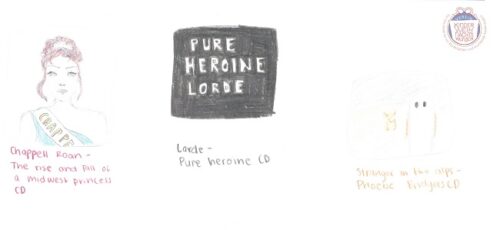 CHAPPE
Chappell Roan -
The rise and fall of
a midwest princess
CD
PURE
HEROINE
LORDE
Lorde -
Pure heroine CD
Stranger in the alps -
Phoebe Bridgers CD